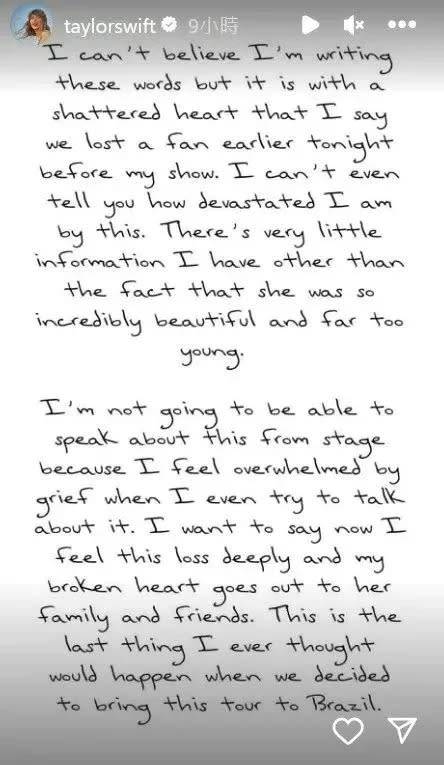 taylorswift 9小時
I can't believe I'm writing
these words but it is with a
shattered heart that I say
we lost a fan earlier tonight
before my show. I can't even
tell you how devastated I am
by this. There's very little
information I have other than
the fact that she was so
incredibly beautiful and far too
young.
I'm not going to be able to
speak about this from stage
because I feel overwhelmed by
grief when I even try to talk
about it. I want to say now I
feel this loss deeply and my
broken heart goes out to her
family and friends. This is the
last thing I ever thought
would happen when we decided
to bring this tour to Brazil.